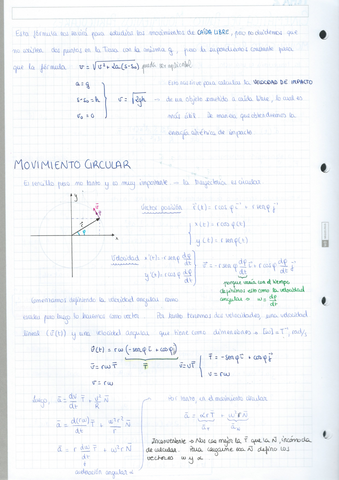 Esta fórmula nos servirá para estudiar los movimientos de CAÍDA LIBRE, pero no olvidemos que
no existen dos puntos en la Tierra con la misma g, pero la supondremos constante para
que la fórmula v = √(v₀² + 2a(s-s₀))
a = g
s-s₀ = h
v₀ = 0
v = √2gh
Esto nos sirve para calcular la VELOCIDAD DE IMPACTO
de un objeto sometido a caída libre, lo cual es
más útil. De manera que obtendríamos la
energía cinética de impacto
MOVIMIENTO CIRCULAR
Es sencillo pero no tanto y es muy importante → la trayectoria es circular
Vector posición r(t) = r cos φ i + r sen φ j
x(t) = r cos φ(t)
y(t) = r sen φ(t)
Velocidad x'(t) = -r sen φ dφ/dt
y'(t) = r cos φ dφ/dt
v = -r sen φ dφ/dt i + r cos φ dφ/dt j
porque varía con el tiempo
definimos esto como la velocidad
angular → ω = dφ/dt
Comenzamos definiendo la velocidad angular como
escalar pero luego lo haremos como vector. Por tanto tenemos dos velocidades, una velocidad
lineal (v(t)) y una velocidad angular que tiene como dimensiones → [ω] = T⁻¹, rad/s
v(t) = rω (-sen φ i + cos φ j)
v = rω T
v = rω
T = -sen φ i + cos φ j
v = vT
v = rω
Luego, a = dv/dt T + v²/R N
a = d(rω)/dt T + ω²r²/r N
a = r dω/dt T + ω²r N
aceleración angular α
Por tanto, en el movimiento circular
a = αr T + ω²r N
Inconveniente → Nos cae mejor la T que la N, incómoda
de calcular. Para cargarme esa N defino los
vectores ω y α